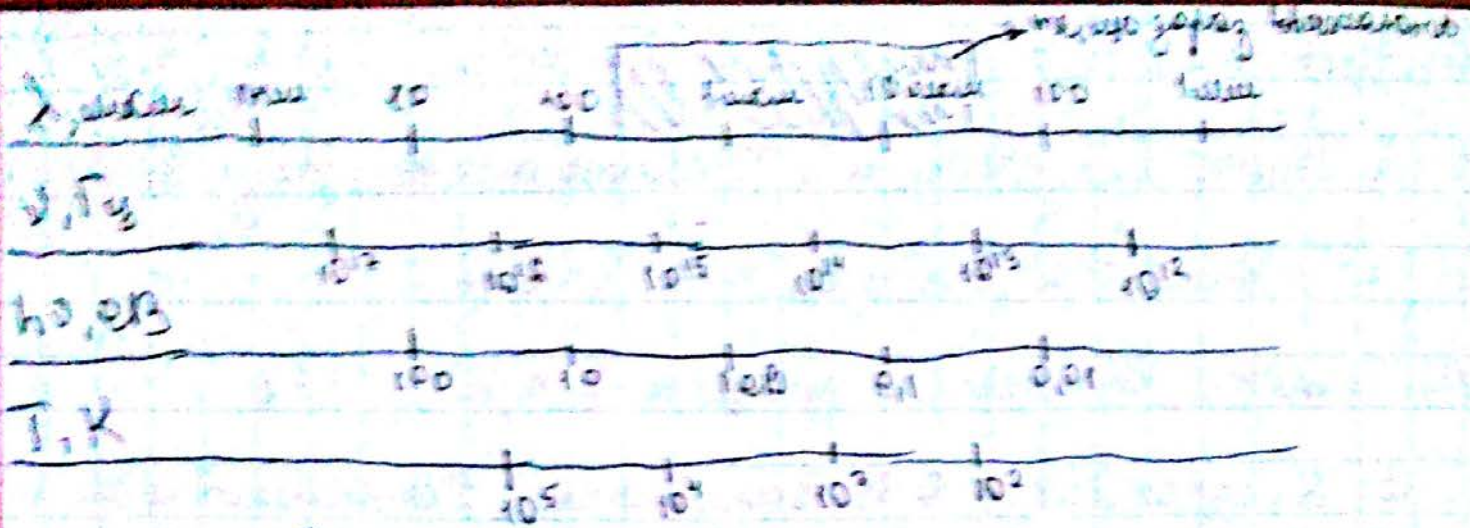 те, що зараз
λ, мкм 1нм 10 100 1мкм 10мкм 100 1мм
ν, Гц
10¹⁷ 10¹⁶ 10¹⁵ 10¹⁴ 10¹³ 10¹²
hν, еВ
100 10 1еВ 0,1 0,01
T, K
10⁵ 10⁴ 10³ 10²